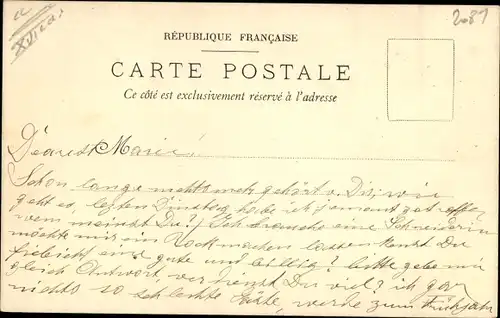 2081
RÉPUBLIQUE FRANÇAISE
CARTE POSTALE
Ce côté est exclusivement réservé à l'adresse
Dearest Marie!
Schon lange nichts mehr gehört v. Dir, wie
geht es, letzten Dinstag habe ich jemant getroffe
wem meinst Du? Ich brauche eine Schneiderin
möchte mir ein Rock machen lassen kenst Du
fieleich eine gute und billig? bitte gebe mir
gleich Antwort, verdienst Du viel? ich gar
nichts so schlechte werde zum Frühjahr